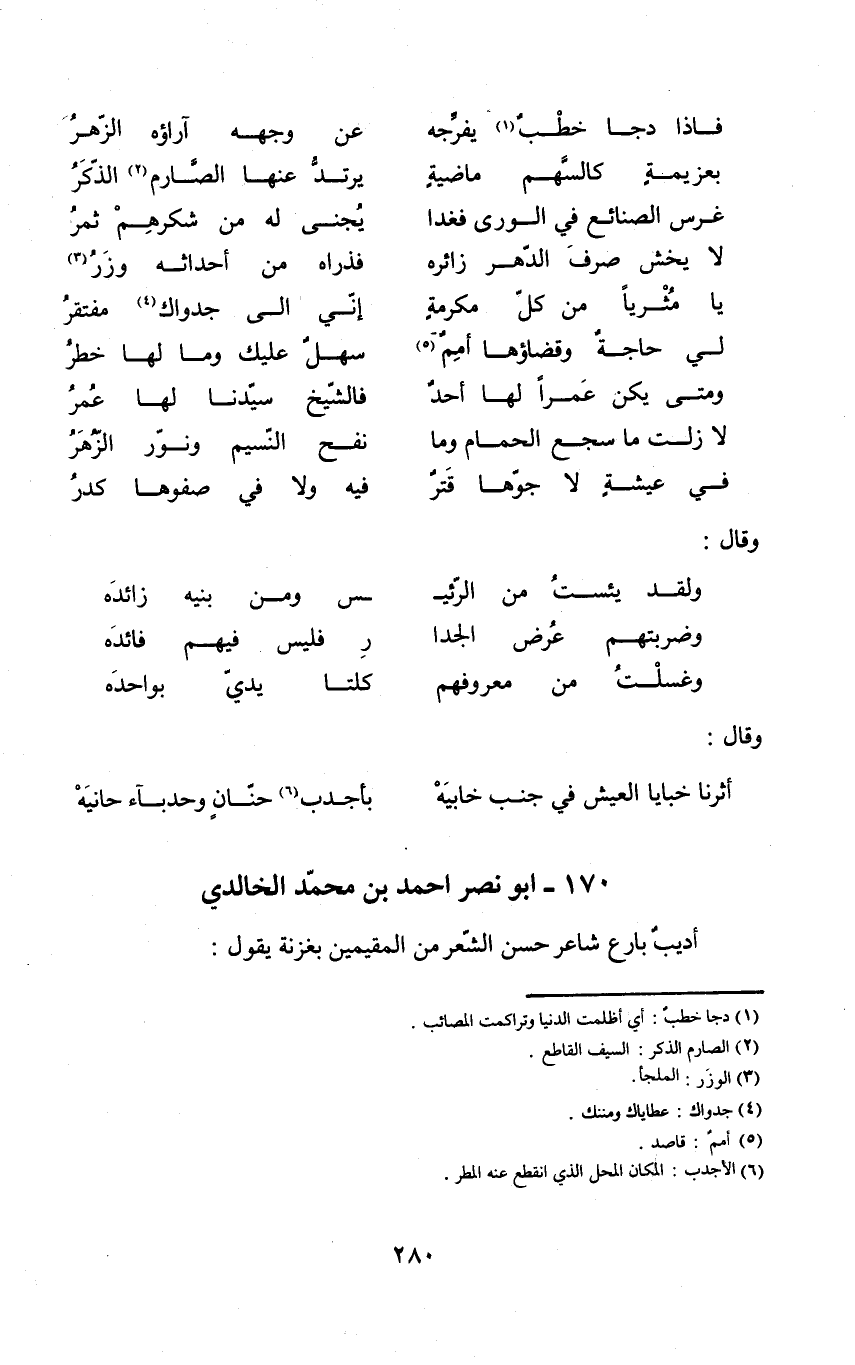 فـاذا دجـا خطْـبٌ(١) يفرِّجه عن وجهـه آراؤه الزّهـرُ
بعزيمـةٍ كالسَّهـم ماضيةٍ يرتـدُّ عنهـا الصَّـارم(٢) الذّكَرُ
غـرس الصنائـع في الـورى فغدا يُجنـى له من شكرهِـمْ ثمرُ
لا يخش صرفَ الدّهـر زائره فذراه من أحداثـه وزَرُ(٣)
يا مُثْـرياً من كلّ مكرمةٍ إنّـي الـى جدواك(٤) مفتقرُ
لـي حاجـةٌ وقضاؤهـا أممٌ(٥) سهـلٌ عليك ومـا لهـا خطرُ
ومتـى يكن عَمـراً لهـا أحدٌ فالشّيخ سيّدنـا لهـا عُمرُ
لا زلـت ما سجـع الحمـام وما نفـح النّسيم ونـوّر الزّهَرُ
فـي عيشـةٍ لا جوّهـا قَترٌ فيه ولا في صفوهـا كدرُ
وقال :
ولقـد يئسـتُ من الرّئيـ ـس ومـن بنيه زائدَه
وضربتهـم عُرض الجدا رِ فليس فيهـم فائدَه
وغسلْـتُ من معروفهم كلتـا يديّ بواحدَه
وقال :
أثرنا خبايا العيش في جنـب خابيَهْ بأجـدب(٦) حنّـانٍ وحدبـآء حانيَهْ
١٧٠ - ابو نصر احمد بن محمّد الخالدي
أديبٌ بارع شاعر حسن الشّعر من المقيمين بغزنة يقول :
(١) دجا خطبٌ : أي أظلمت الدنيا وتراكمت المصائب .
(٢) الصارم الذكر : السيف القاطع .
(٣) الوزَر : الملجأ.
(٤) جدواك : عطاياك ومننك .
(٥) أممٌ : قاصد .
(٦) الأجدب : المكان المحل الذي انقطع عنه المطر .
٢٨٠